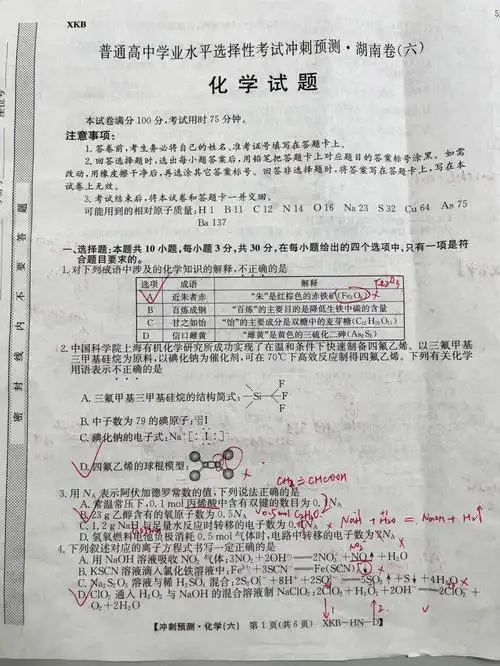 XKB
普通高中学业水平选择性考试冲刺预测·湖南卷(六)
化学试题
本试卷满分100分,考试用时75分钟。
注意事项:
1.答卷前,考生务必将自己的姓名、准考证号填写在答题卡上。
2.回答选择题时,选出每小题答案后,用铅笔把答题卡上对应题目的答案标号涂黑。如需
改动,用橡皮擦干净后,再选涂其它答案标号。回答非选择题时,将答案写在答题卡上,写在本
试卷上无效。
3.考试结束后,将本试卷和答题卡一并交回。
可能用到的相对原子质量:H 1 B 11 C 12 N 14 O 16 Na 23 S 32 Cu 64 As 75
Ba 137
一、选择题:本题共10小题,每小题3分,共30分,在每小题给出的四个选项中,只有一项是符
合题目要求的。
1.对下列成语中涉及的化学知识的解释,不正确的是
选项 成语 解释
A 近朱者赤 “朱”是红棕色的赤铁矿(Fe₃O₄) Fe₂O₃
B 百炼成钢 “百炼”的主要目的是降低生铁中碳的含量
C 甘之如饴 “饴”的主要成分是双糖中的麦芽糖(C₁₂H₂₂O₁₁)
D 信口雌黄 “雌黄”是黄色的三硫化二砷(As₂S₃)
2.中国科学院上海有机化学研究所成功实现了在温和条件下快速制备四氟乙烯。以三氟甲基
三甲基硅烷为原料,以碘化钠为催化剂,可在70℃下高效反应制得四氟乙烯。下列有关化学
用语表示不正确的是
A.三氟甲基三甲基硅烷的结构简式: —Si— F F F
B.中子数为79的碘原子:
C.碘化钠的电子式:Na⁺[:I:]⁻
D.四氟乙烯的球棍模型:
CH₂=CHCOOH
3.用Nₐ表示阿伏加德罗常数的值,下列说法正确的是
A.常温常压下,0.1 mol丙烯酸中含有双键的数目为0.2Nₐ
B.23 g乙醇含有的氧原子数为0.5Nₐ 0.5mol C₂H₆O
C.1.2 g NaH与足量水反应时转移的电子数为 Nₐ × NaH + H₂O = NaOH + H₂↑
D.氢氧燃料电池负极消耗0.5 mol气体时,电路中转移的电子数为Nₐ
4.下列叙述对应的离子方程式书写一定正确的是
A.用NaOH溶液吸收NO₂气体:3NO₂+2OH⁻══2NO₃⁻+NO↑+H₂O
B.KSCN溶液滴入氯化铁溶液中:Fe³⁺+3SCN⁻══Fe(SCN)₃↓
C.Na₂S₂O₃溶液与稀H₂SO₄混合:2S₂O₃²⁻+8H⁺+2SO₄²⁻══5SO₂↑+S↓+4H₂O
D.ClO₂通入H₂O₂与NaOH的混合溶液制NaClO₂:2ClO₂+H₂O₂+2OH⁻══2ClO₂⁻+
O₂+2H₂O
【冲刺预测·化学(六) 第1页(共6页) XKB-HN-D】
密封线内不要答题